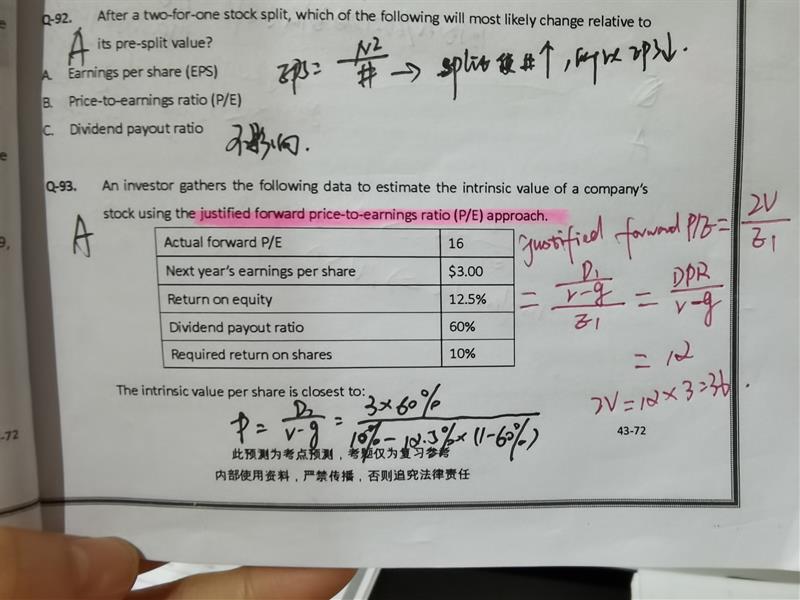 Q-92. After a two-for-one stock split, which of the following will most likely change relative to
A its pre-split value?
A. Earnings per share (EPS)
EPS = N2/# → split 后 #↑, EPS↓.
B. Price-to-earnings ratio (P/E)
C. Dividend payout ratio 不影响.
Q-93. An investor gathers the following data to estimate the intrinsic value of a company's
A stock using the justified forward price-to-earnings ratio (P/E) approach.
Actual forward P/E 16
Next year's earnings per share $3.00
Return on equity 12.5%
Dividend payout ratio 60%
Required return on shares 10%
justified forward P/E = IV/E1
= D1/(r-g)/E1 = DPR/(r-g)
= 12
IV = 12 × 3 = 36.
The intrinsic value per share is closest to:
P = D1/(r-g) = 3×60%/10% - 12.5%×(1-60%)
43-72
此预测为考点预测，考题仅为复习参考
内部使用资料，严禁传播，否则追究法律责任
-72
9,
e
e